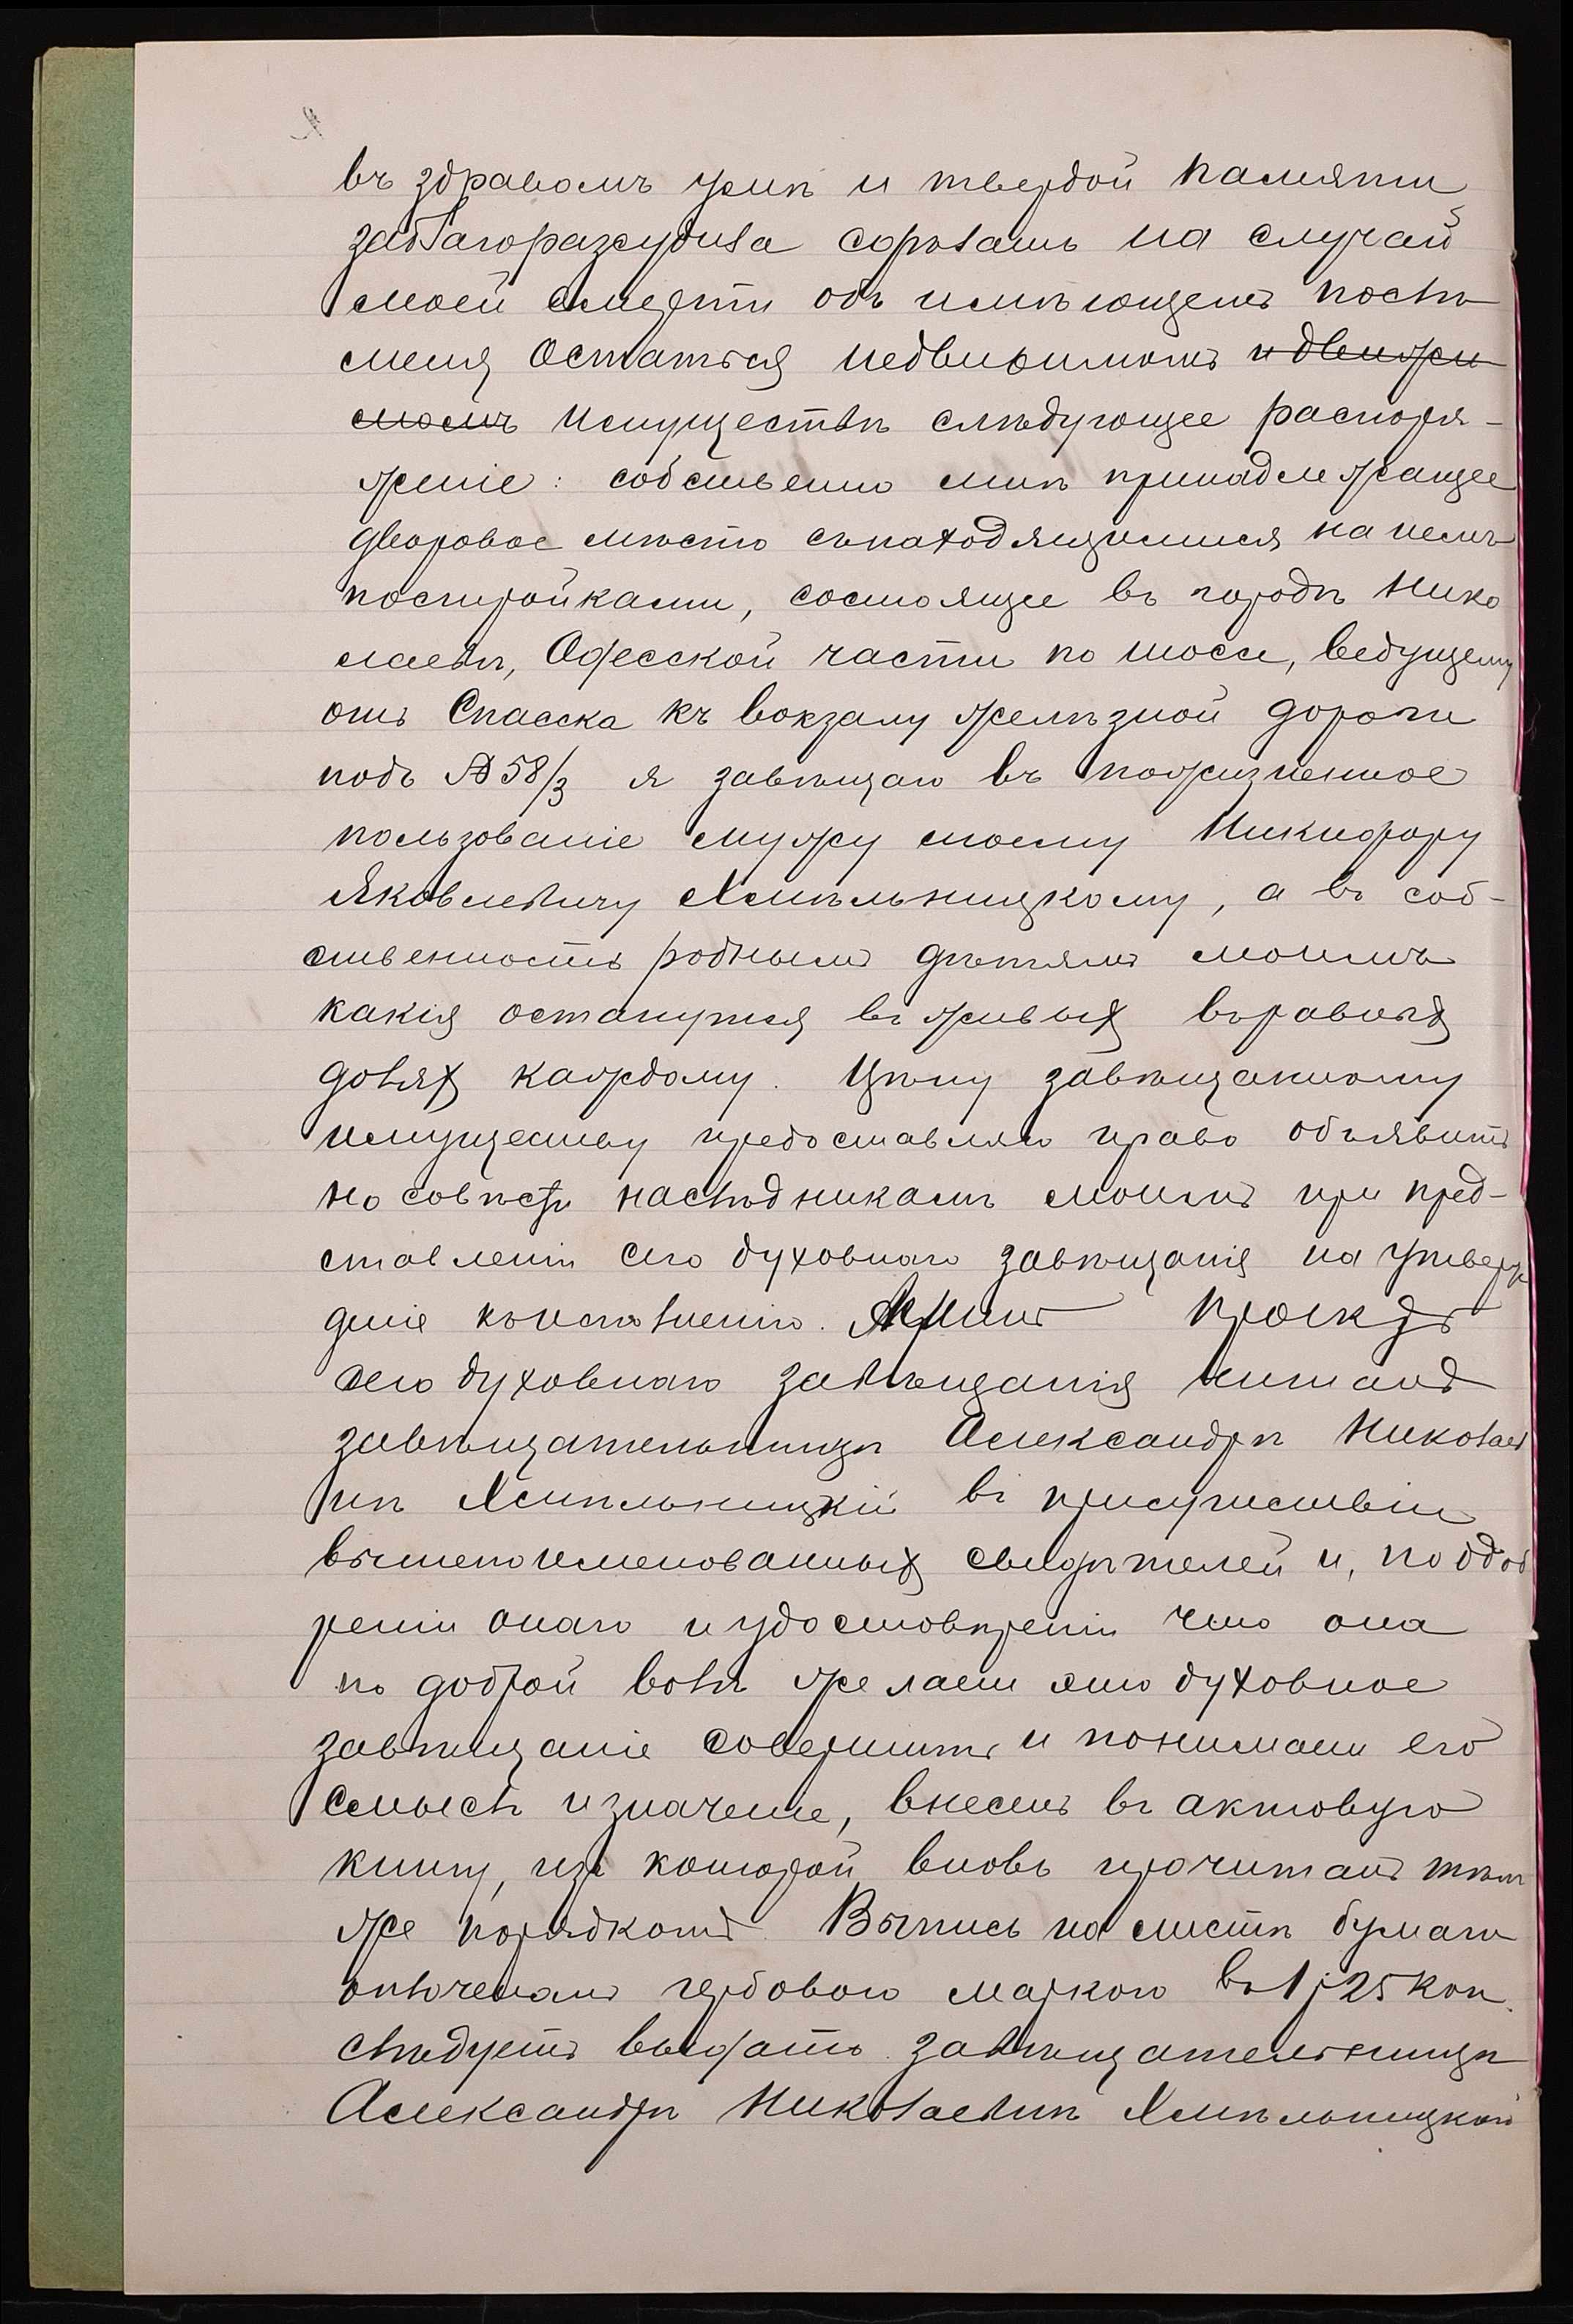 въ здравомъ умѣ и твердой памяти
заблагоразсудила сдѣлать на случай
моей смерти объ имѣющемъ послѣ
меня остаться недвижимомъ и движи
момъ имуществѣ слѣдующее распоря-
женіе: собственно мнѣ принадлежащее
дворовое мѣсто съ находящимися на немъ
постройками, состоящее въ городѣ Нико
лаевѣ, Одесской части по шоссе, ведущему
отъ Спасска къ вокзалу желѣзной дороги
подъ № 58/3 я завѣщаю въ пожизненное
пользованіе мужу моему Никифору
Яковлевичу Хмѣльницкому, а въ соб-
ственность роднымъ дѣтямъ моимъ
какія останутся въ живыхъ въ равныхъ
доляхъ каждому. Цѣну завѣщанному
имуществу предоставляю право объявить
по совѣсти наслѣдникамъ моимъ при пред-
ставленіи сего духовнаго завѣщанія на утверж
деніе къ исполненію. Проектъ
сего духовнаго завѣщанія читанъ
завѣщательницѣ Александрѣ Николаев
нѣ Хмѣльницкой въ присутствіи
вышепоименованныхъ свидѣтелей и, по одоб
реніи онаго и удостовѣреніи что она
по доброй волѣ желаетъ это духовное
завѣщаніе совершить и понимаетъ его
смыслъ и значеніе, внесенъ въ актовую
книгу, изъ которой вновь прочитанъ тѣмъ
же порядкомъ. Выпись на листѣ бумаги
оплоченомъ гербовою маркою въ 1 р 25 коп.
слѣдуетъ выдать завѣщательницѣ
Александрѣ Николаевнѣ Хмѣльницкой